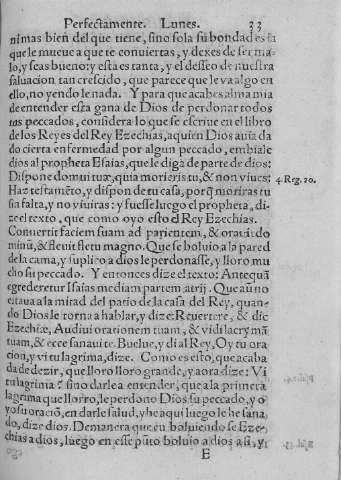 Perfectamente. Lunes. 33
nimas bien del que tiene, sino sola su bondad es la
que le mueue a que te conuiertas, y dexes de ser ma-
lo, y seas bueno: y esta es tanta, y el desseo de nuestra
saluacion tan crescido, que parece que le va algo en
ello, no yendo le nada. Y para que acabes alma mia
de entender esta gana de Dios de perdonar todos
tus peccados, considera lo que se escriue en el libro
de los Reyes del Rey Ezechias, a quien Dios auia da
do cierta enfermedad por algun peccado, embiale
dios al propheta Esaias, que le diga de parte de dios:
Dispone domui tuæ, quia morieris tu, & non viues: 4 Reg. 20.
Haz testamēto, y dispon de tu casa, porq̃ moriras tu
sia falta, y no viuiras: y fuesse luego el propheta, di-
ze el texto, que como oyo esto el Rey Ezechias.
Conuertit faciem suam ad parientem, & orauit do
minū, & fleuit fletu magno. Que se boluio a la pared
de la cama, y suplico a dios le perdonasse, y lloro mu
cho su peccado. Y entonces dize el texto: Antequā
egrederetur Isaias mediam partem atrij. Que aū no
estaua a la mitad del patio de la casa del Rey, quan-
do Dios le torna a hablar, y dize: Reuertere, & dic
Ezechiæ, Audiui orationem tuam, & vidi lacrymā
tuam, & ecce sanaui te. Buelue, y di al Rey, Oy tu ora
cion, y vi tu lagrima, dize. Como es esto, que acaba
da de dezir, que lloro lloro grande, y aora dize: Vi
tu lagrima? sino darle a entender, que a la primera
lagrima que lloro, le perdono Dios su peccado, y o
yo su oraciō, en darle salud, y he aqui luego le he sana
do, dize dios. De manera que en boluiendo se Eze-
chias a dios, luego en esse pūto boluio a dios a si, y
E